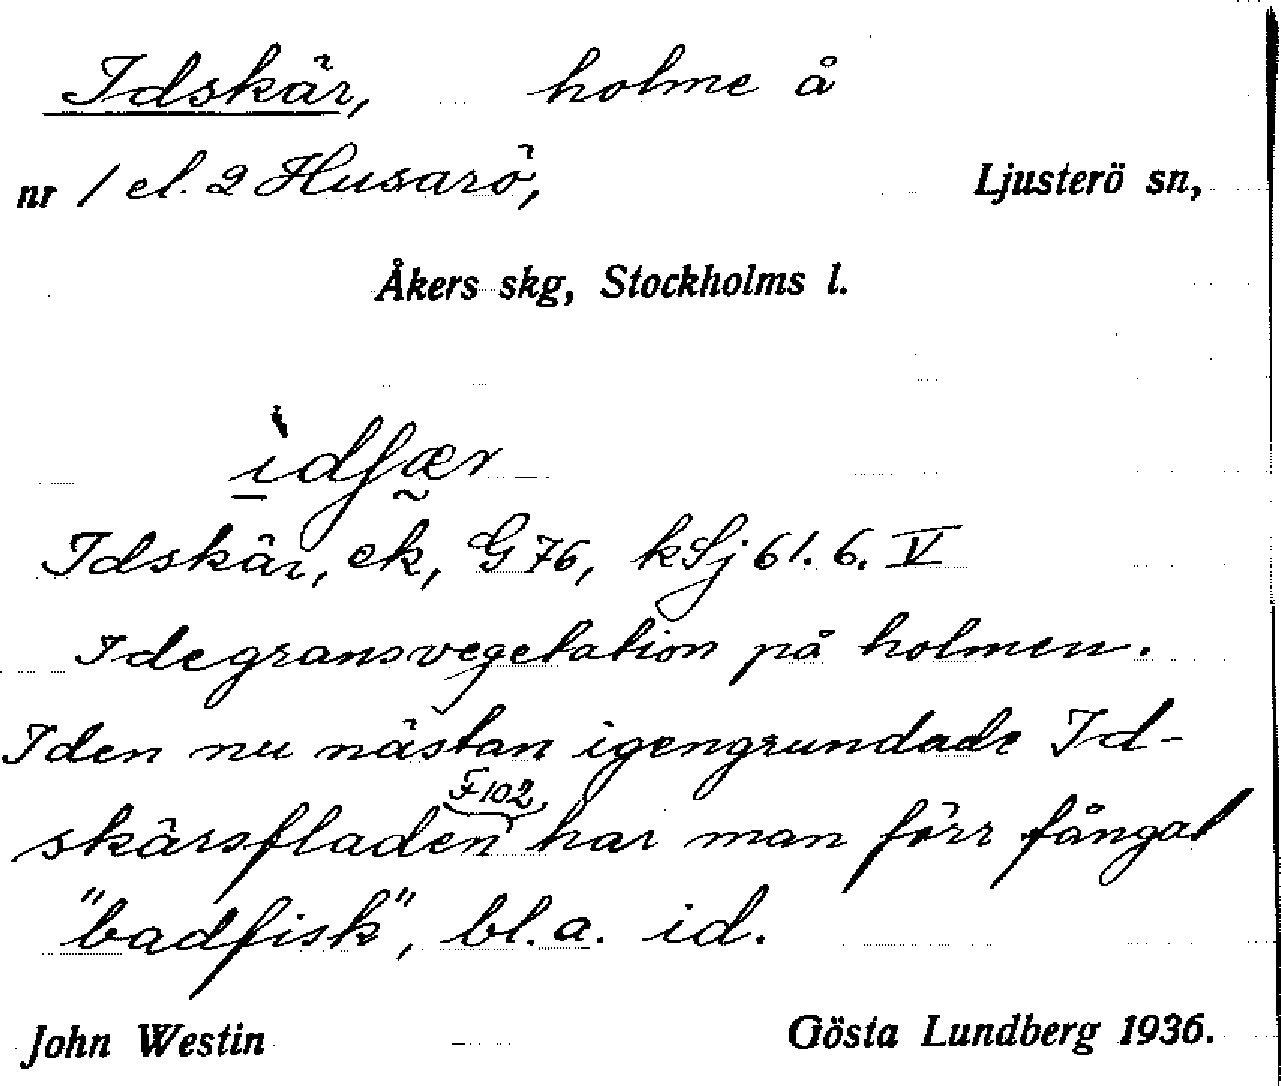 Idskär, holme å
nr 1 el. 2 Husarö, Ljusterö sn,
Åkers skg, Stockholms l.
ìdʃær
Idskär, ek, G 76, kSj 61. 6. V
Idegransvegetation på holmen.
Iden nu nästan igengrundade Id-
F 102
skärsfladen har man förr fångat
"badfisk", bl. a. id.
John Westin Gösta Lundberg 1936.